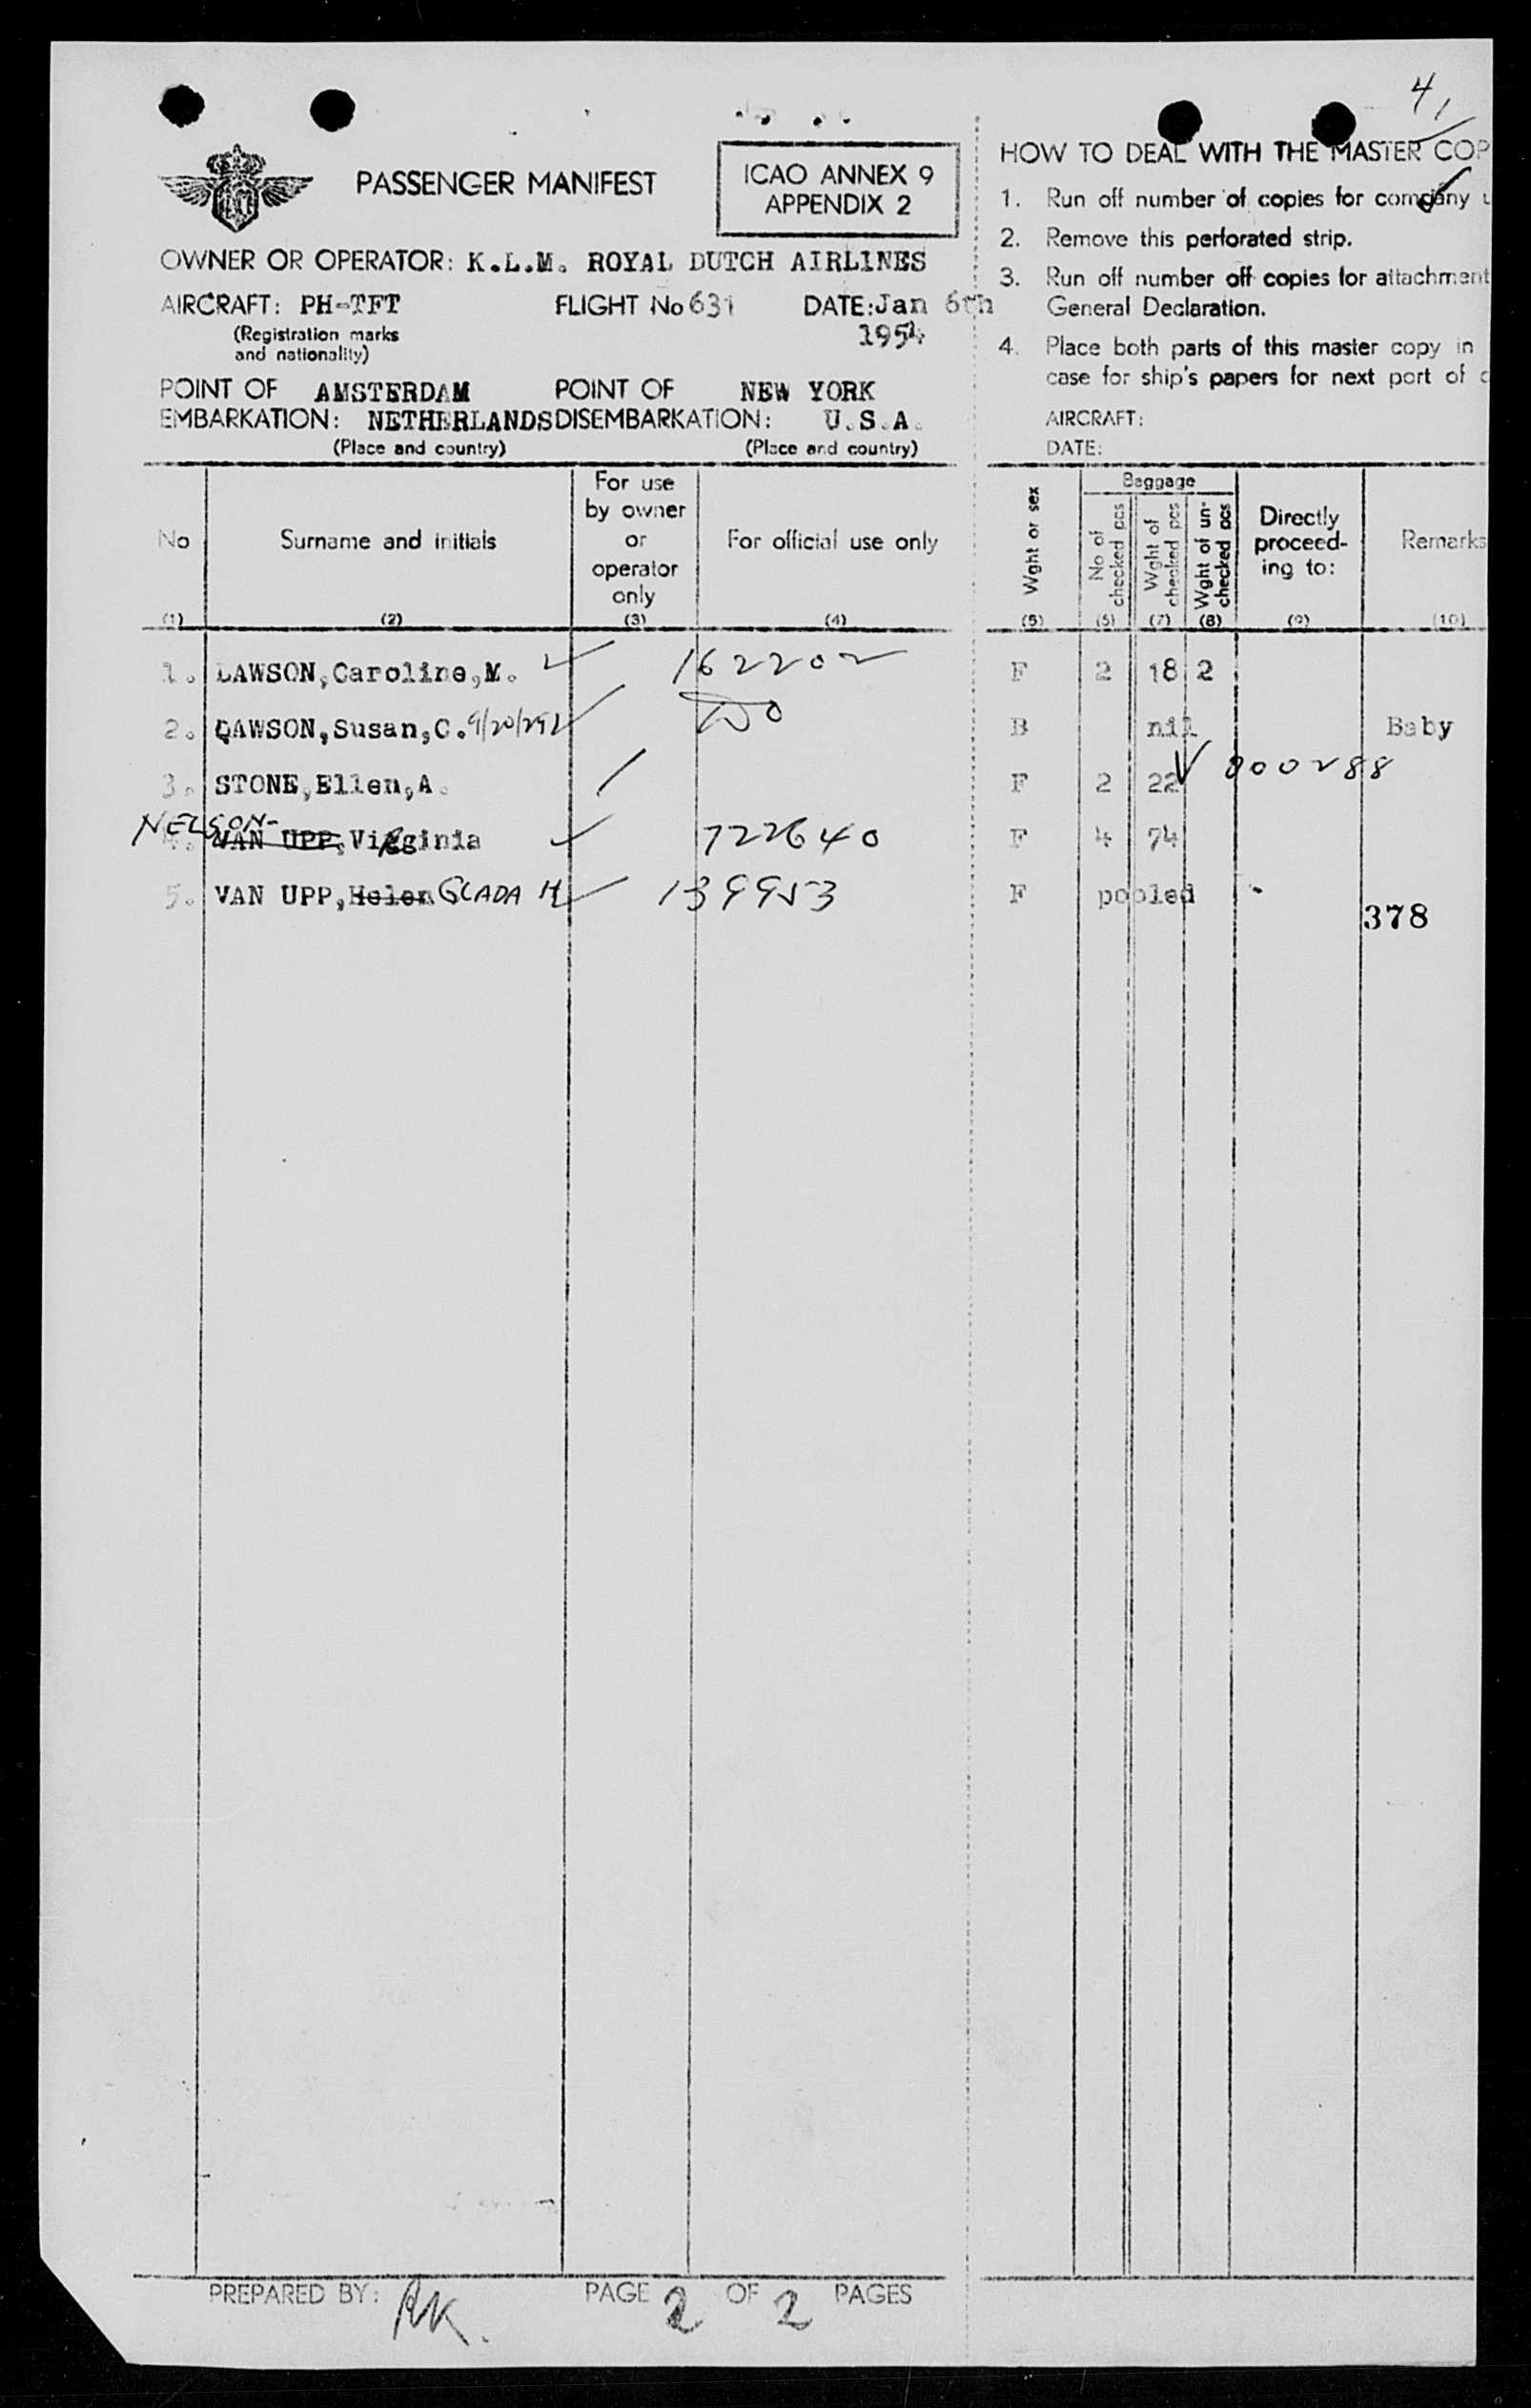 41
PASSENGER MANIFEST
ICAO ANNEX 9
APPENDIX 2
OWNER OR OPERATOR: K.L.M. ROYAL DUTCH AIRLINES
AIRCRAFT: PH-TFT FLIGHT No 631 DATE: Jan 6th
(Registration marks 1954
and nationality)
POINT OF AMSTERDAM POINT OF NEW YORK
EMBARKATION: NETHERLANDS DISEMBARKATION: U.S.A.
(Place and country) (Place and country)
HOW TO DEAL WITH THE MASTER COP
1. Run off number of copies for company u
2. Remove this perforated strip.
3. Run off number off copies for attachment
General Declaration.
4. Place both parts of this master copy in
case for ship's papers for next port of c
AIRCRAFT:
DATE:
No (1)
Surname and initials (2)
For use by owner or operator only (3)
For official use only (4)
Wght or sex (5)
Baggage
No of checked pcs (6)
Wght of checked pcs (7)
Wght of un-checked pcs (8)
Directly proceed-ing to: (9)
Remarks (10)
1. LAWSON, Caroline, M. 162202 F 2 18 2
2. LAWSON, Susan, C. DO B nil Baby
3. STONE, Ellen, A. F 2 22 800288
NELSON-
4. VAN UPP, Virginia 722640 F 4 74
5. VAN UPP, Helen GLADA H 139953 F pooled
378
PREPARED BY: RK. PAGE 2 OF 2 PAGES